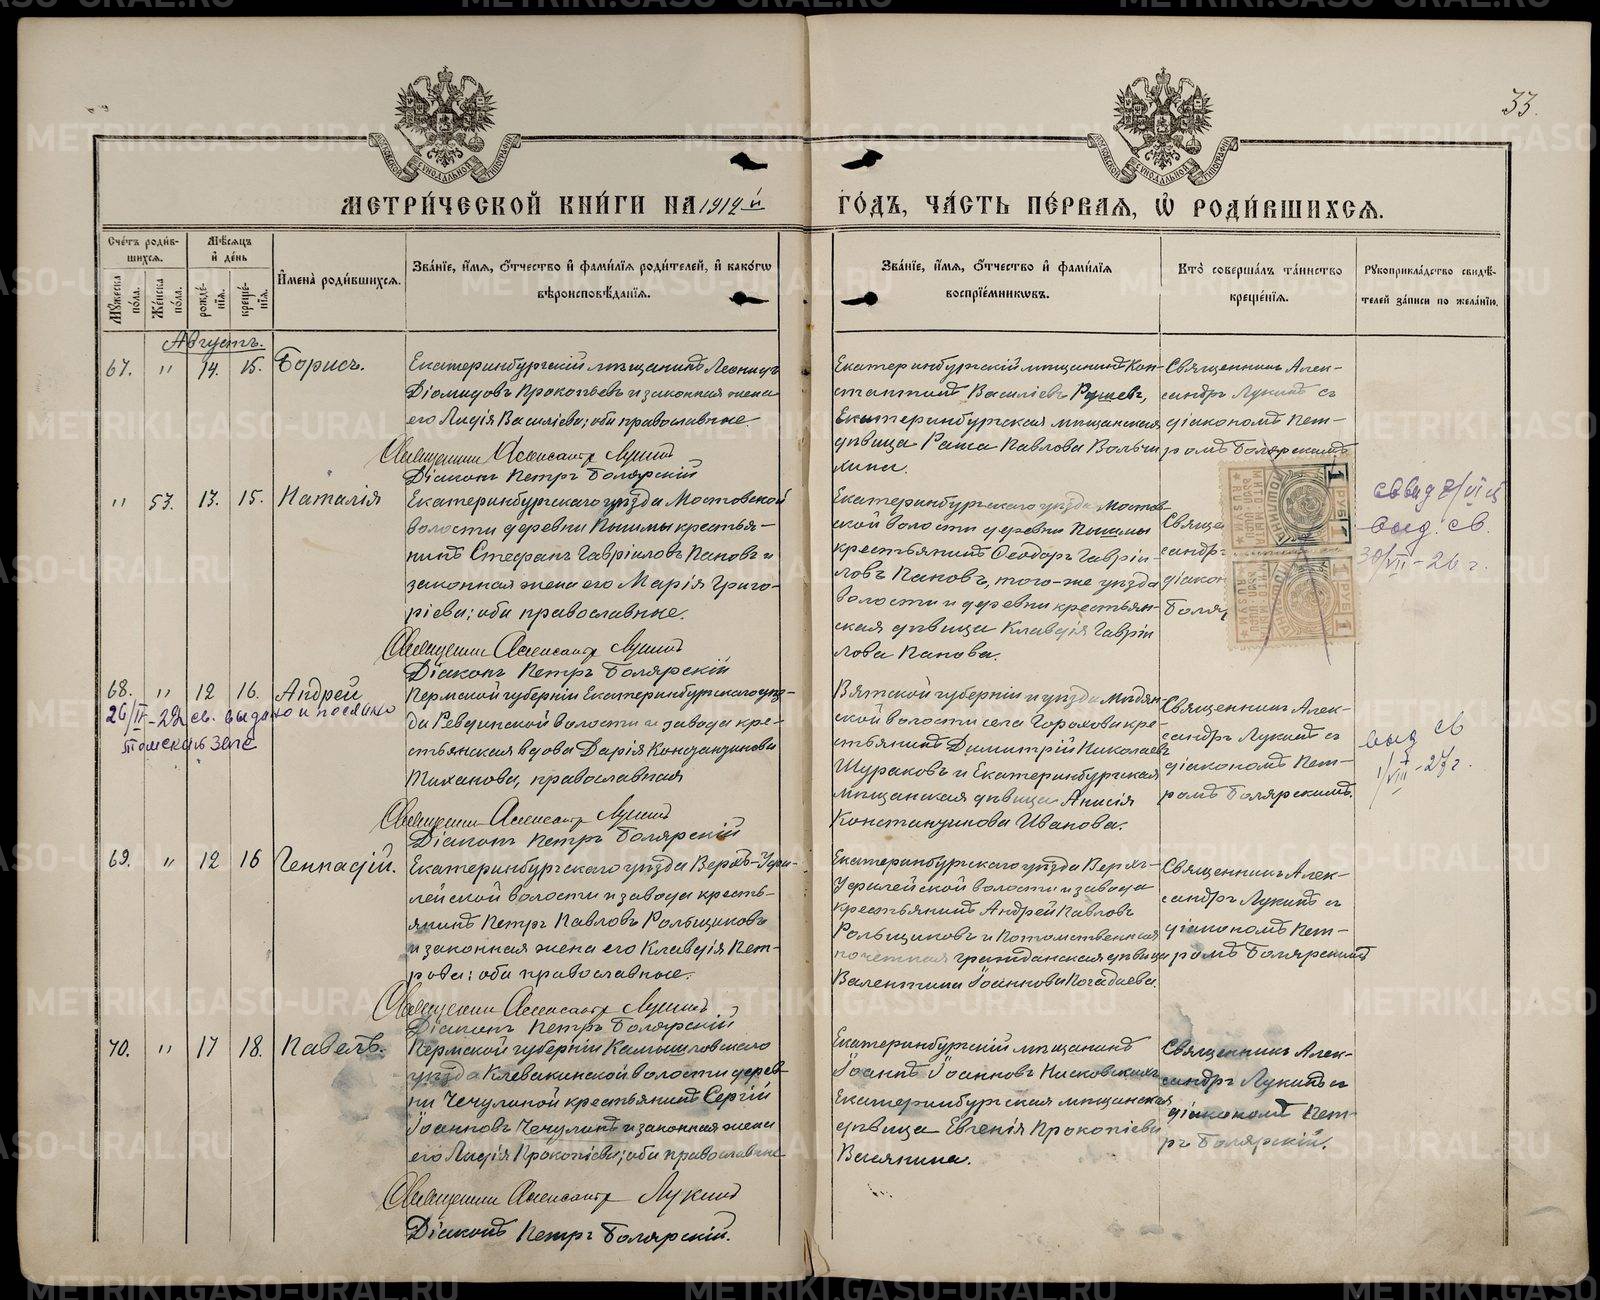 33.
МЕТРИ́ЧЕСКОЙ КНИ́ГИ НА 1912 й ГО́ДЪ, ЧА́СТЬ ПЕ́РВАЯ, Ѡ РОДИ́ВШИХСѦ.
Сче́тъ роди́вшихсѧ.
Мꙋ́жеска по́ла.
Же́нска по́ла.
Мѣ́сѧцъ и҆ де́нь
рожде́нїѧ.
креще́нїѧ.
И҆мена̀ роди́вшихсѧ.
Зва́нїе, и҆́мѧ, ѻ҆́тчество и҆ фами́лїѧ роди́телей, и҆ како́гѡ вѣроисповѣ́данїѧ.
Зва́нїе, и҆́мѧ, ѻ҆́тчество и҆ фами́лїѧ воспрїе́мникѡвъ.
Кто̀ соверша́лъ та́инство креще́нїѧ.
Рꙋкоприкла́дство свидѣ́телей за́писи по жела́нїю.
Августъ.
67. " 14. 15. Борисъ.
Екатеринбургскій мѣщанинъ Леонидъ
Діомидовъ Прокопьевъ и законная жена
его Лидія Васильева; оба православные.
Священникъ Александръ Лукинъ
Діаконъ Петръ Болярскій
Екатеринбургскій мѣщанинъ Кон-
стантинъ Василіевъ
Екатеринбургская мѣщанская
дѣвица Раиса Павлова
Священникъ Алек-
сандръ Лукинъ съ
діакономъ Пет-
ромъ Болярскимъ
" 53. 13. 15. Наталія
Екатеринбургскаго уѣзда Мостовской
волости деревни Пышмы крестья-
нинъ Стефанъ Гавріиловъ Пановъ и
законная жена его Марія Григо-
ріева; оба православные.
Священникъ Александръ Лукинъ
Діаконъ Петръ Болярскій
Екатеринбургскаго уѣзда Мостов-
ской волости деревни Пышмы
крестьянинъ Ѳеодоръ Гавріи-
ловъ Пановъ, того-же уѣзда
волости и деревни крестьян-
ская дѣвица Клавдія Гавріи
лова Панова.
Свяще
сандръ
діакон
Боляр
1 РУБЛ 1
1 РУБЛ 1
выд. св.
30/VII-26 г.
68. " 12 16. Андрей
26/II-29 св. выдано и послано
Пермской губерніи Екатеринбургскаго уѣз-
да Ревдинской волости и завода кре-
стьянская вдова Дарія Константинова
Тиханова, православная
Священникъ Александръ Лукинъ
Діаконъ Петръ Болярскій
Вятской губерніи и уѣзда
ской волости села Горохова кре-
стьянинъ Димитрій Николаевъ
Шураковъ и Екатеринбургская
мѣщанская дѣвица Анисія
Константинова Иванова.
Священникъ Алек-
сандръ Лукинъ съ
діакономъ Пет-
ромъ Болярскимъ.
выд св
1/VIII-27 г.
69. " 12 16 Геннадій.
Екатеринбургскаго уѣзда Верхъ-Уфа-
лейской волости и завода кресть-
янинъ Петръ Павловъ Рольщиковъ
и законная жена его Клавдія Пет-
рова; оба православные.
Священникъ Александръ Лукинъ
Діаконъ Петръ Болярскій
Екатеринбургскаго уѣзда Верхъ-
Уфалейской волости и завода
крестьянинъ Андрей Павловъ
Рольщиковъ и потомственная
почетная гражданская дѣвица
Валентина Іоаннова Погадаева.
Священникъ Алек-
сандръ Лукинъ съ
діакономъ Пет-
ромъ Болярскимъ
70. " 17 18. Павелъ.
Пермской губерніи Камышловскаго
уѣзда Клевакинской волости дерев-
ни Чечулиной крестьянинъ Сергій
Іоанновъ Чечулинъ и законная жена
его Лидія Прокопіева; оба православные
Священникъ Александръ Лукинъ
Діаконъ Петръ Болярскій.
Екатеринбургскій мѣщанинъ
Іоаннъ Іоанновъ
Екатеринбургская мѣщанская
дѣвица Евгенія Прокопіева
Васянина.
Священникъ Алек-
сандръ Лукинъ съ
діакономъ Пет-
ръ Болярскій.
METRIKI.GASO-URAL.RU